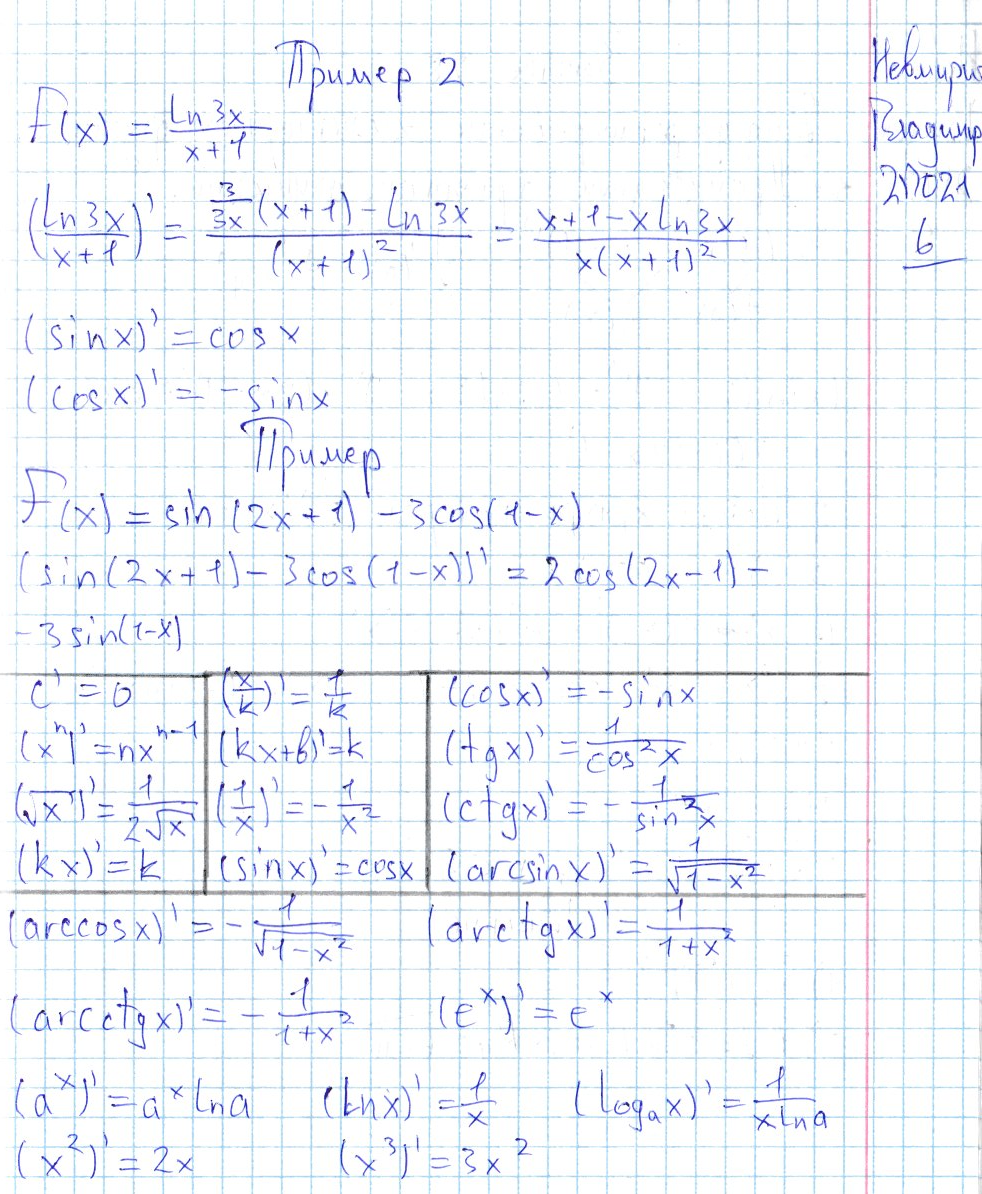 Пример 2
F(x) = ln 3x / x+1
(ln 3x / x+1)' = (3/3x (x+1) - ln 3x) / (x+1)² = (x+1-x ln 3x) / x(x+1)²
(sin x)' = cos x
(cos x)' = -sin x
Пример
F(x) = sin (2x+1) - 3cos(1-x)
(sin(2x+1) - 3cos(1-x))' = 2cos(2x-1) -
-3sin(1-x)
c' = 0 (x/k)' = 1/k (cos x)' = -sin x
(xⁿ)' = nxⁿ⁻¹ (kx+b)' = k (tg x)' = 1/cos²x
(√x)' = 1/2√x (1/x)' = -1/x² (ctg x)' = -1/sin²x
(kx)' = k (sin x)' = cos x (arcsin x)' = 1/√1-x²
(arccos x)' = -1/√1-x² (arctg x)' = 1/1+x²
(arcctg x)' = -1/1+x² (eˣ)' = eˣ
(aˣ)' = aˣ ln a (ln x)' = 1/x (logₐx)' = 1/x ln a
(x²)' = 2x (x³)' = 3x²
Владимир
2П021
6